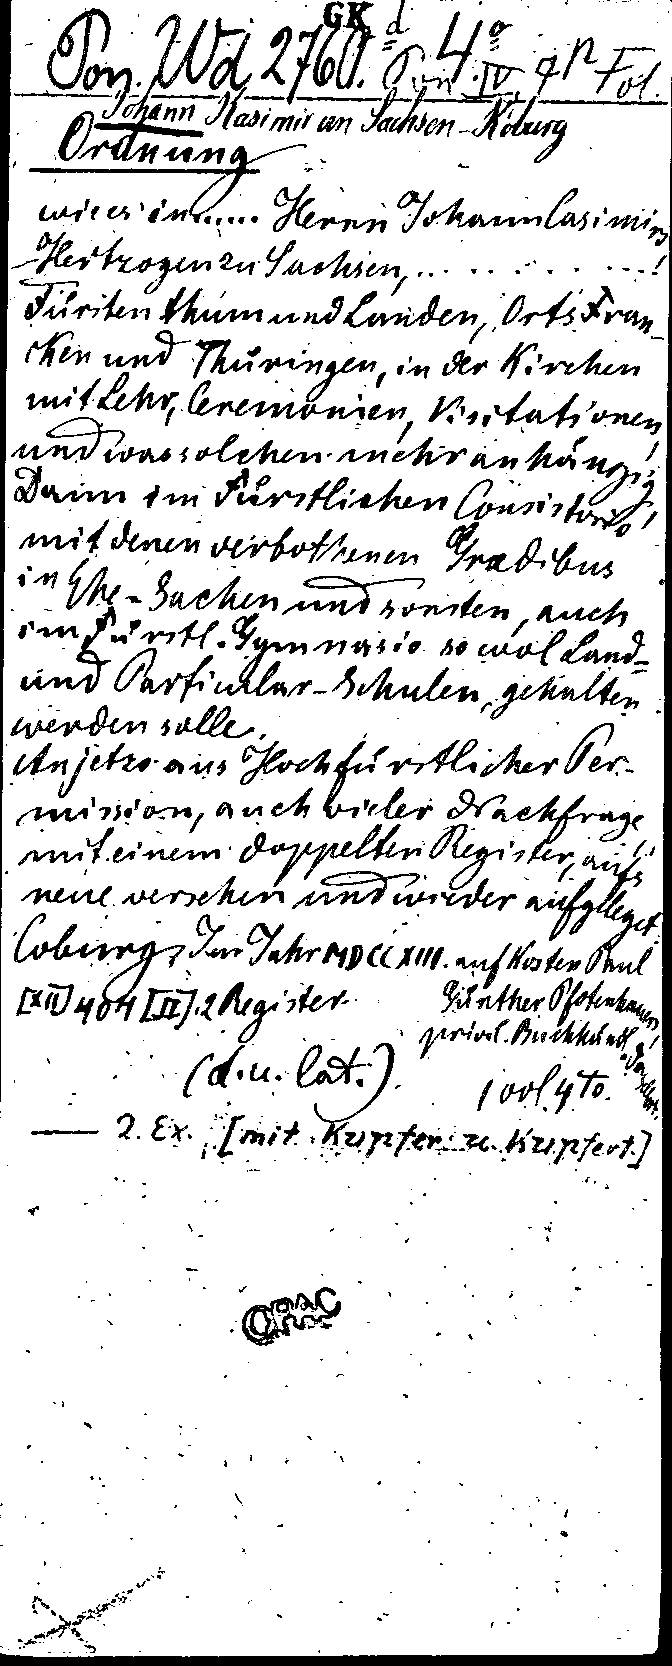 GK
Pon. Wd 2760. d 4° Pon. IV, qn Fol.
Johann Kasimir von Sachsen-Koburg
Ordnung
wie es in..... Herrn Johann Casimirs
Hertzogen zu Sachsen,...........
Fürstenthum und Landen, Orts Fran-
cken und Thüringen, in der Kirchen
mit Lehr, Ceremonien, Visitationen,
und was solchen mehr anhängig
Dann im Fürstlichen Consistorio
mit denen verbothenen Gradibus
in Ehe-Sachen und sonsten, auch
im Fürstl. Gymnasio so wol Land-
und Particular-Schulen, gehalten
werden solle.
Anjetzo aus Hochfürstlicher Per-
mission, auch vieler Nachfrage
mit einem doppelten Register, aufs
neue versehen und wieder aufgeleget
Coburg, Im Jahr MDCCXIII. auf Kosten Paul
Günther Pfotenhauers,
privil. Buchhändl.
[XII] 404 [II]. 2 Register
(d. u. lat.). 1 vol. 4to.
— 2. Ex. [mit Kupfer u. Kupfert.]